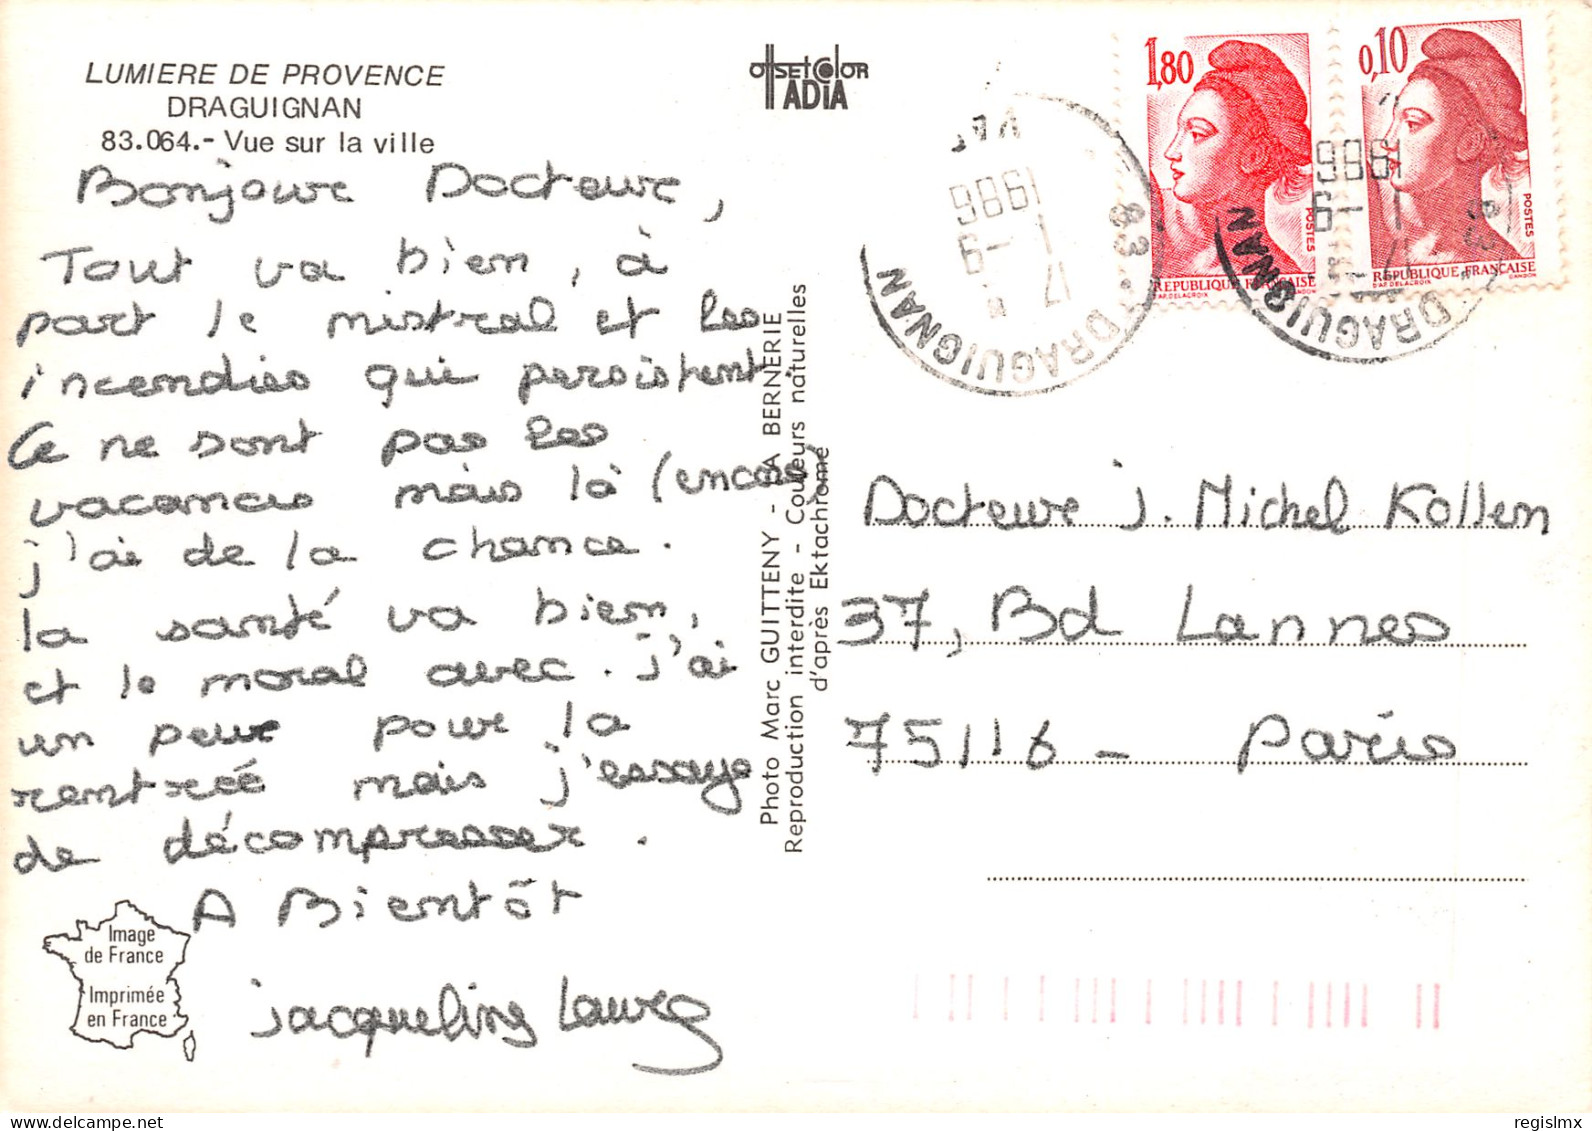 LUMIERE DE PROVENCE
DRAGUIGNAN
83.064.- Vue sur la ville
Bonjour Docteur,
Tout va bien, à
part le mistral et les
incendies qui persistent.
Ce ne sont pas les
vacances mais là (encore)
j'ai de la chance.
la santé va bien,
et le moral avec. j'ai
un peur pour la
rentrée mais j'essaye
de décompresser.
A Bientôt
jacqueline
Image
de France
Imprimée
en France
Offset Color
ADIA
Photo Marc GUITTENY - LA BERNERIE
Reproduction interdite - Couleurs naturelles
d'après Ektachrome
1,80
POSTES
REPUBLIQUE FRANÇAISE
D'AP. DELACROIX
GANDON
0,10
POSTES
REPUBLIQUE FRANÇAISE
D'AP. DELACROIX
GANDON
83 DRAGUIGNAN
17
1 -9
1986
83 DRAGUIGNAN
1 -9
1986
Docteur j. Michel Kollen
37, Bd Lannes
75116 - Paris
© regislmx